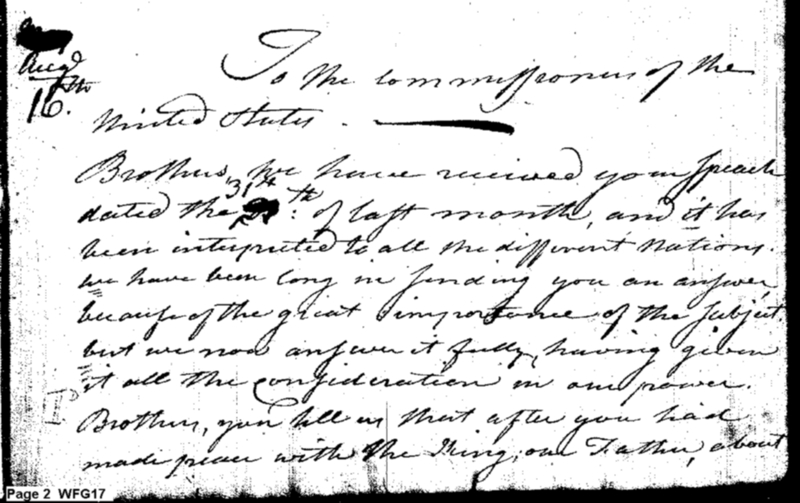 Augt
16th.
To the Commissioners of the
United States.
Brothers, We have received your Speach
dated the 31st th: of last month, and it has
been interpreted to all the different Nations.
we have been long in sending you an answer,
because of the great importance of the Subject.
but we now answer it fully, having given
it all the Consideration in our power.
Brothers, you tell us that after you had
made peace with the King, our Father, about
Page 2 WFG17